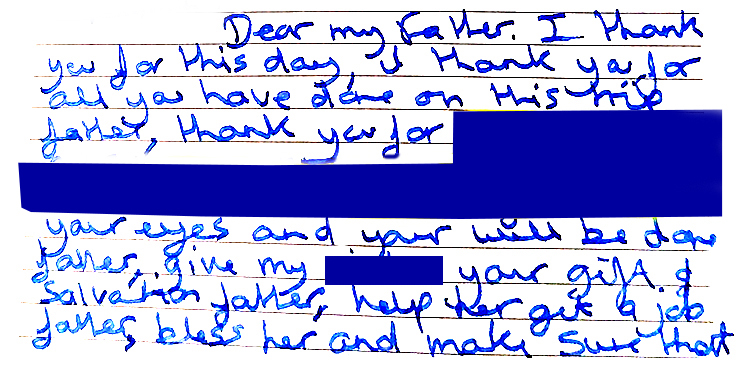 Dear my Father. I thank
you for this day, I thank you for
all you have done on this trip
father, thank you for
your eyes and your will be done
father, give my your gift &
Salvation father, help her get a job
father, bless her and make Sure that